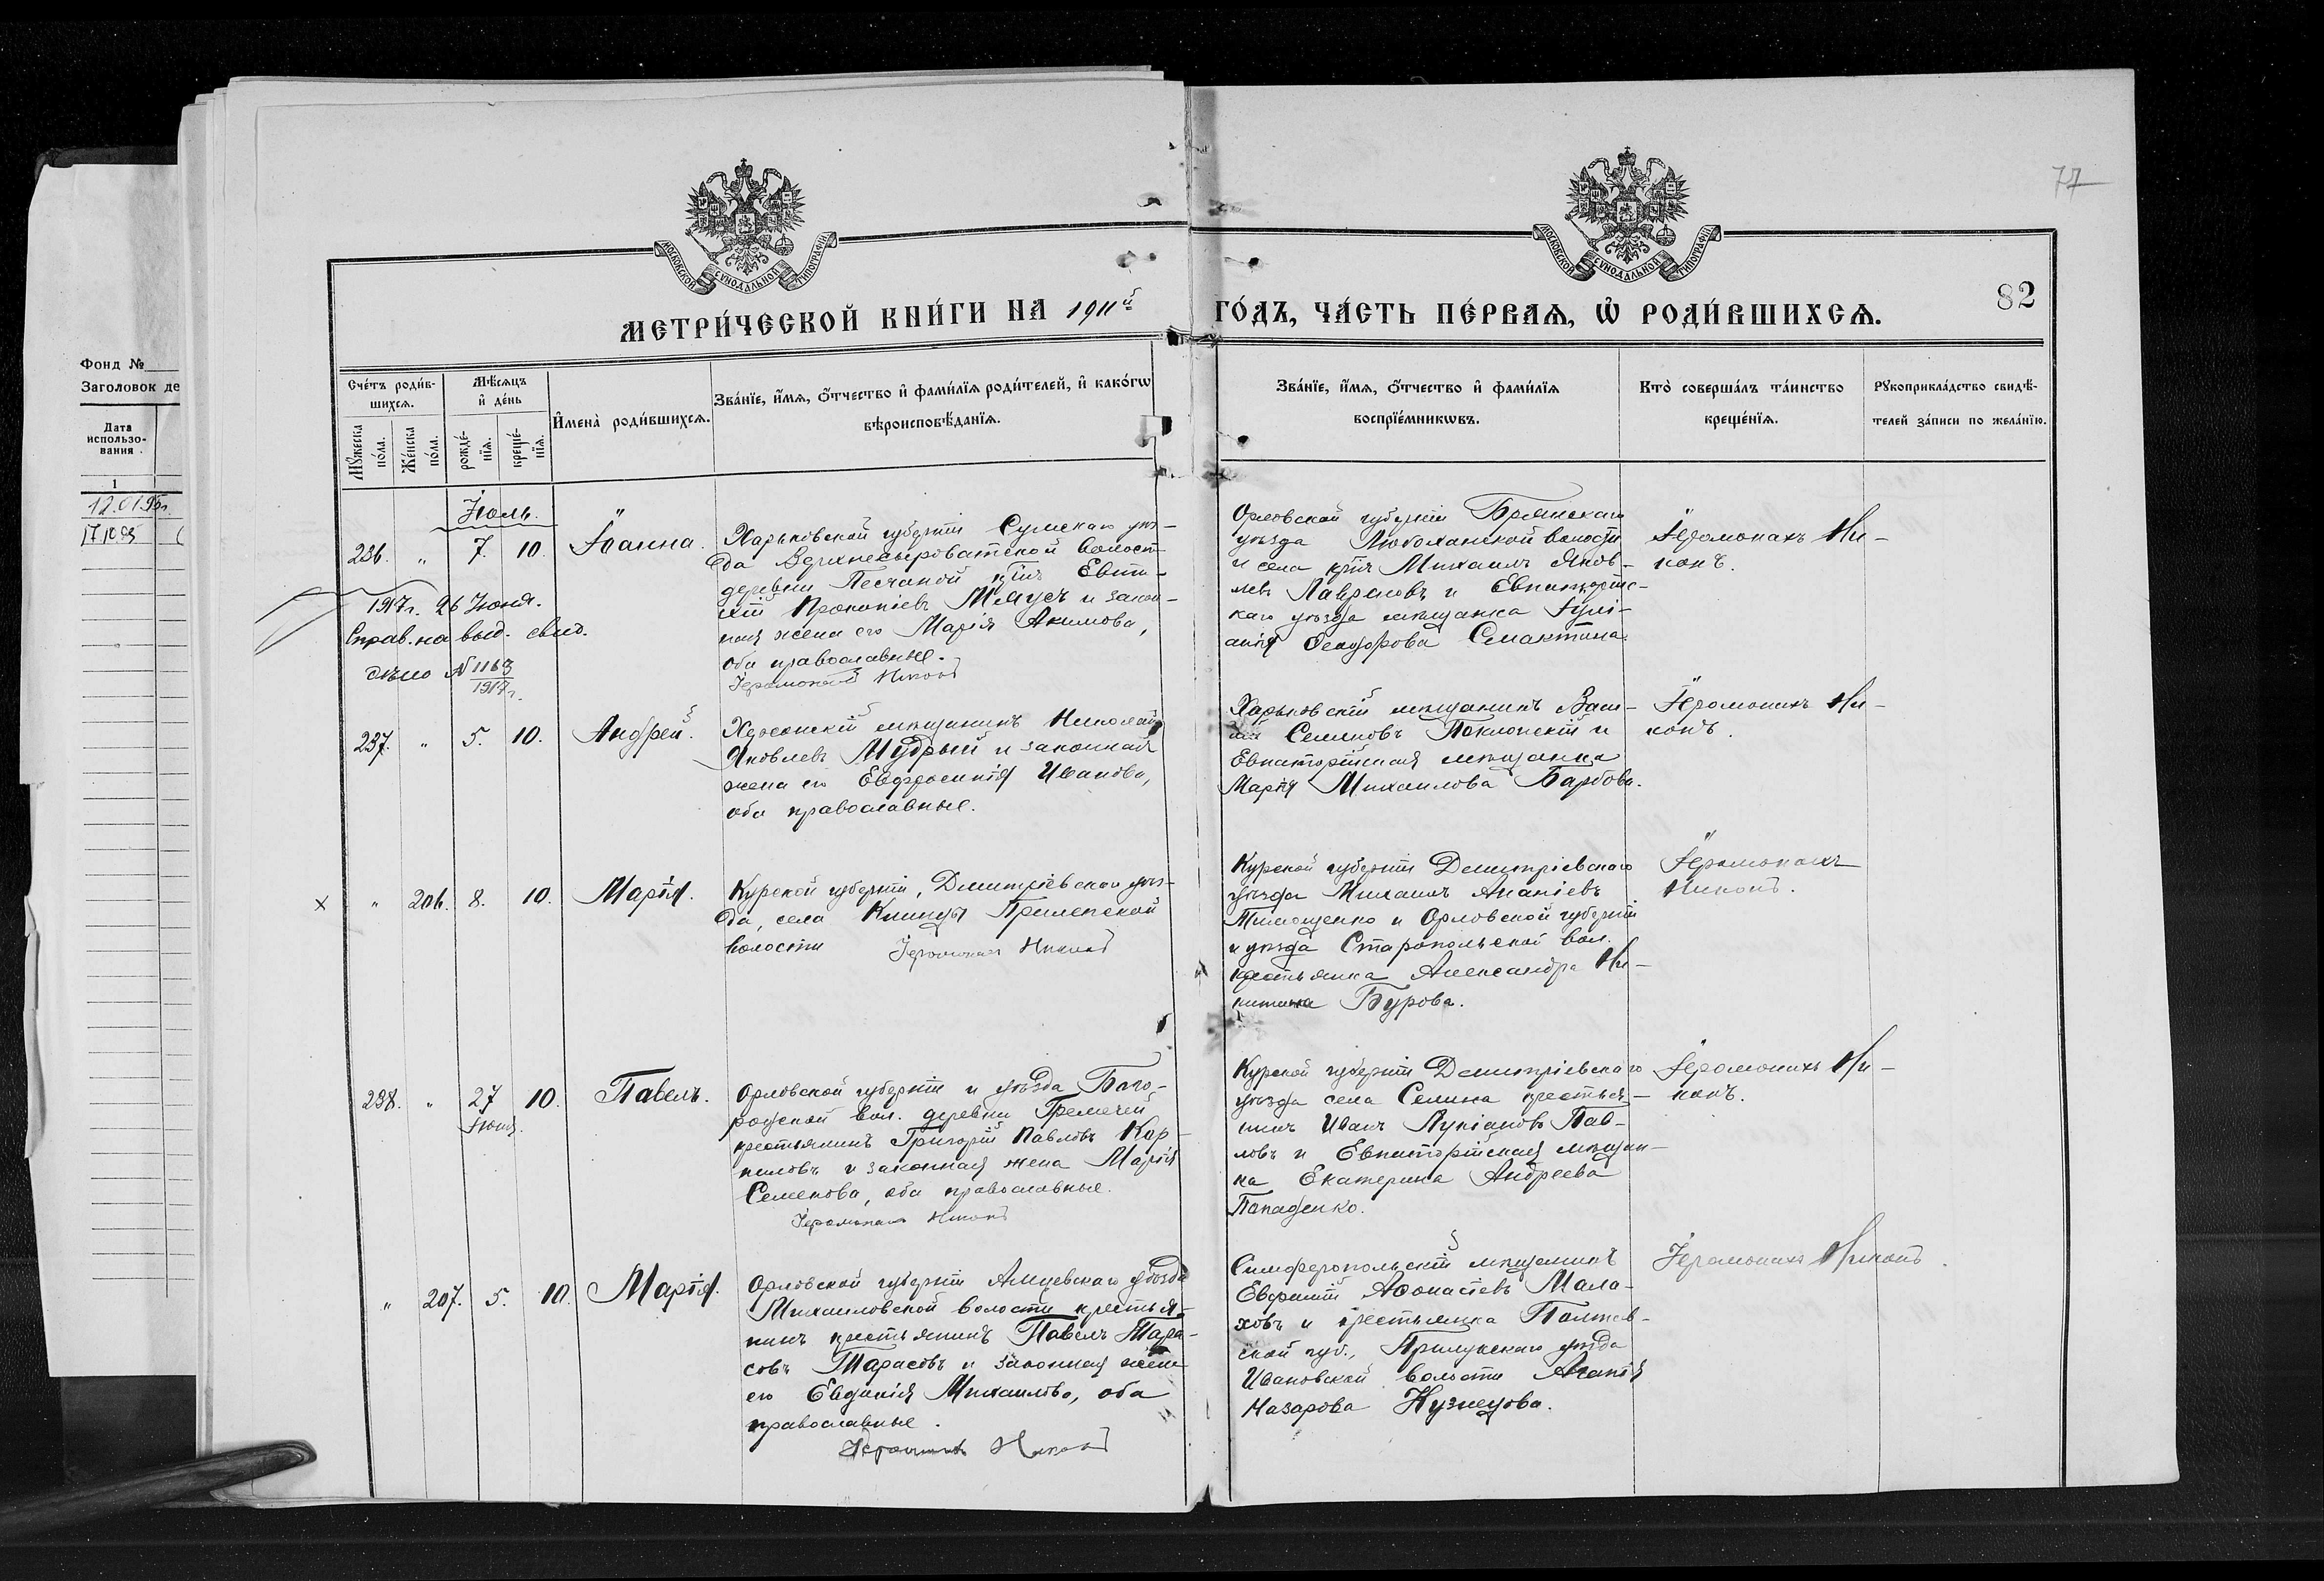 Фонд №
Заголовок де
Дата
использо-
вания
1
12.01.95г.
77
82
МОСКОВСКОЙ СѴНОДАЛЬНОЙ ТИПОГРАФІИ
МОСКОВСКОЙ СѴНОДАЛЬНОЙ ТИПОГРАФІИ
МЕТРИ́ЧЕСКОЙ КНИ́ГИ НА 1911й ГО́ДЪ, ЧА́СТЬ ПЕ́РВАѦ, Ѡ҆ РОДИ́ВШИХСѦ.
Сче́тъ роди́в-
шихсѧ.
Мѣ́сѧцъ
и҆ де́нь
И҆мена̀ роди́вшихсѧ.
Зва́нїе, и҆́мѧ, ѻ҆́тчество и҆ фами́лїѧ роди́телей, и҆ како́гѡ
вѣроисповѣ́данїѧ.
Мꙋ́жеска
по́ла.
Же́нска
по́ла.
рожде́-
нїѧ.
креще́-
нїѧ.
Зва́нїе, и҆́мѧ, ѻ҆́тчество и҆ фами́лїѧ
воспрїе́мникѡвъ.
Кто̀ соверша́лъ та́инство
креще́нїѧ.
Рꙋкоприкла́дство свидѣ́-
телей за́писи по жела́нїю.
Іюль.
236. " 7. 10. Іоанна.
Харьковской губерніи Сумскаго уѣз-
да Верхнесыроватской волост
деревни Песчаной
Прокопіевъ и закон-
ная жена его Марія Акимова,
оба православные.
Іеромонахъ Никонъ
Орловской губерніи Брянскаго
уѣзда волости
и села Михаилъ Яков-
левъ Лавреновъ и Евпаторійс-
каго уѣзда мѣщанка Іулі-
анія Ѳеодорова
Іеромонахъ Ни-
конъ.
1917г. 26 Іюня.
Справ. на выд. свид.
дѣло № 1163
1917г.
237. " 5. 10. Андрей.
Херсонскій мѣщанинъ Николай
Яковлевъ Мудрый и законная
жена его Евфросинія Иванова,
оба православные.
Харьковскій мѣщанинъ Васи-
лій Семеновъ Поклонскій и
Евпаторійская мѣщанка
Марія Михаилова Барбова.
Іеромонахъ Ни-
конъ.
× " 206. 8. 10. Марія.
Курской губерніи, Дмитріевскаго уѣз-
да, села Клинцы Прилепской
волости Іеромонахъ Никонъ
Курской губерніи Дмитріевскаго
уѣзда Михаилъ Ананіевъ
Тимощенко и Орловской губерніи
и уѣзда Старопольской вол.
крестьянка Александра Ни-
китина Бурова.
Іеромонахъ
Никонъ.
238. " 27 10. Павелъ.
Іюня.
Орловской губерніи и уѣзда Бого-
родской вол. деревни Гремячей
крестьянинъ Григорій Павловъ Кор-
ниловъ и законная жена Марія
Семенова, оба православные.
Іеромонахъ Никонъ
Курской губерніи Дмитріевскаго
уѣзда села Селина крестья-
нинъ Иванъ Лукіановъ Пав-
ловъ и Евпаторійская мѣщан-
ка Екатерина Андреева
Попаденко.
Іеромонахъ Ни-
конъ.
" 207. 5. 10. Марія.
Орловской губерніи уѣзда
Михаиловской волости крестья-
нинъ крестьянинъ Павелъ Тара-
совъ Тарасовъ и законная жена
его Евдокія Михаилова, оба
православные.
Іеромонахъ Никонъ
Симферопольскій мѣщанинъ
Евфимій Аѳонасіевъ Мала-
ховъ и крестьянка Полтав-
ской губ., Прилукскаго уѣзда
Ивановской волости Агапія
Назарова Кузнецова.
Іеромонахъ Никонъ.